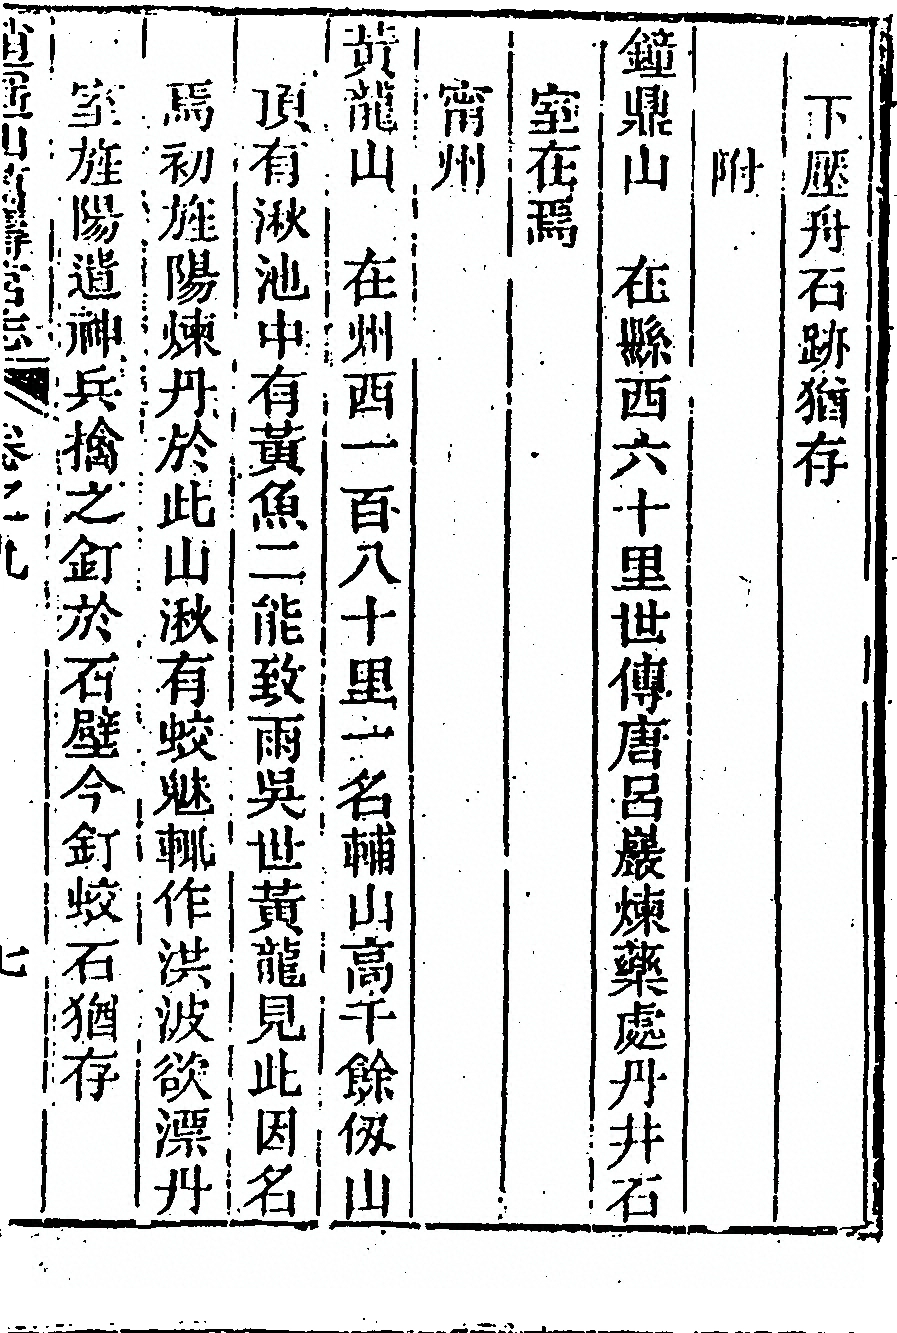 下壓舟石跡猶存
附
鐘鼎山　在縣西六十里世傳唐呂巖煉藥處丹井石
室在焉
甯州
黃龍山　在州西一百八十里一名輔山高千餘仭山
頂有湫池中有黃魚二能致雨吳世黃龍見此因名
焉初旌陽煉丹於此山湫有蛟魅輒作洪波欲漂丹
室旌陽遣神兵擒之釘於石壁今釘蛟石猶存
逍遙山萬壽宮志　卷之九　七